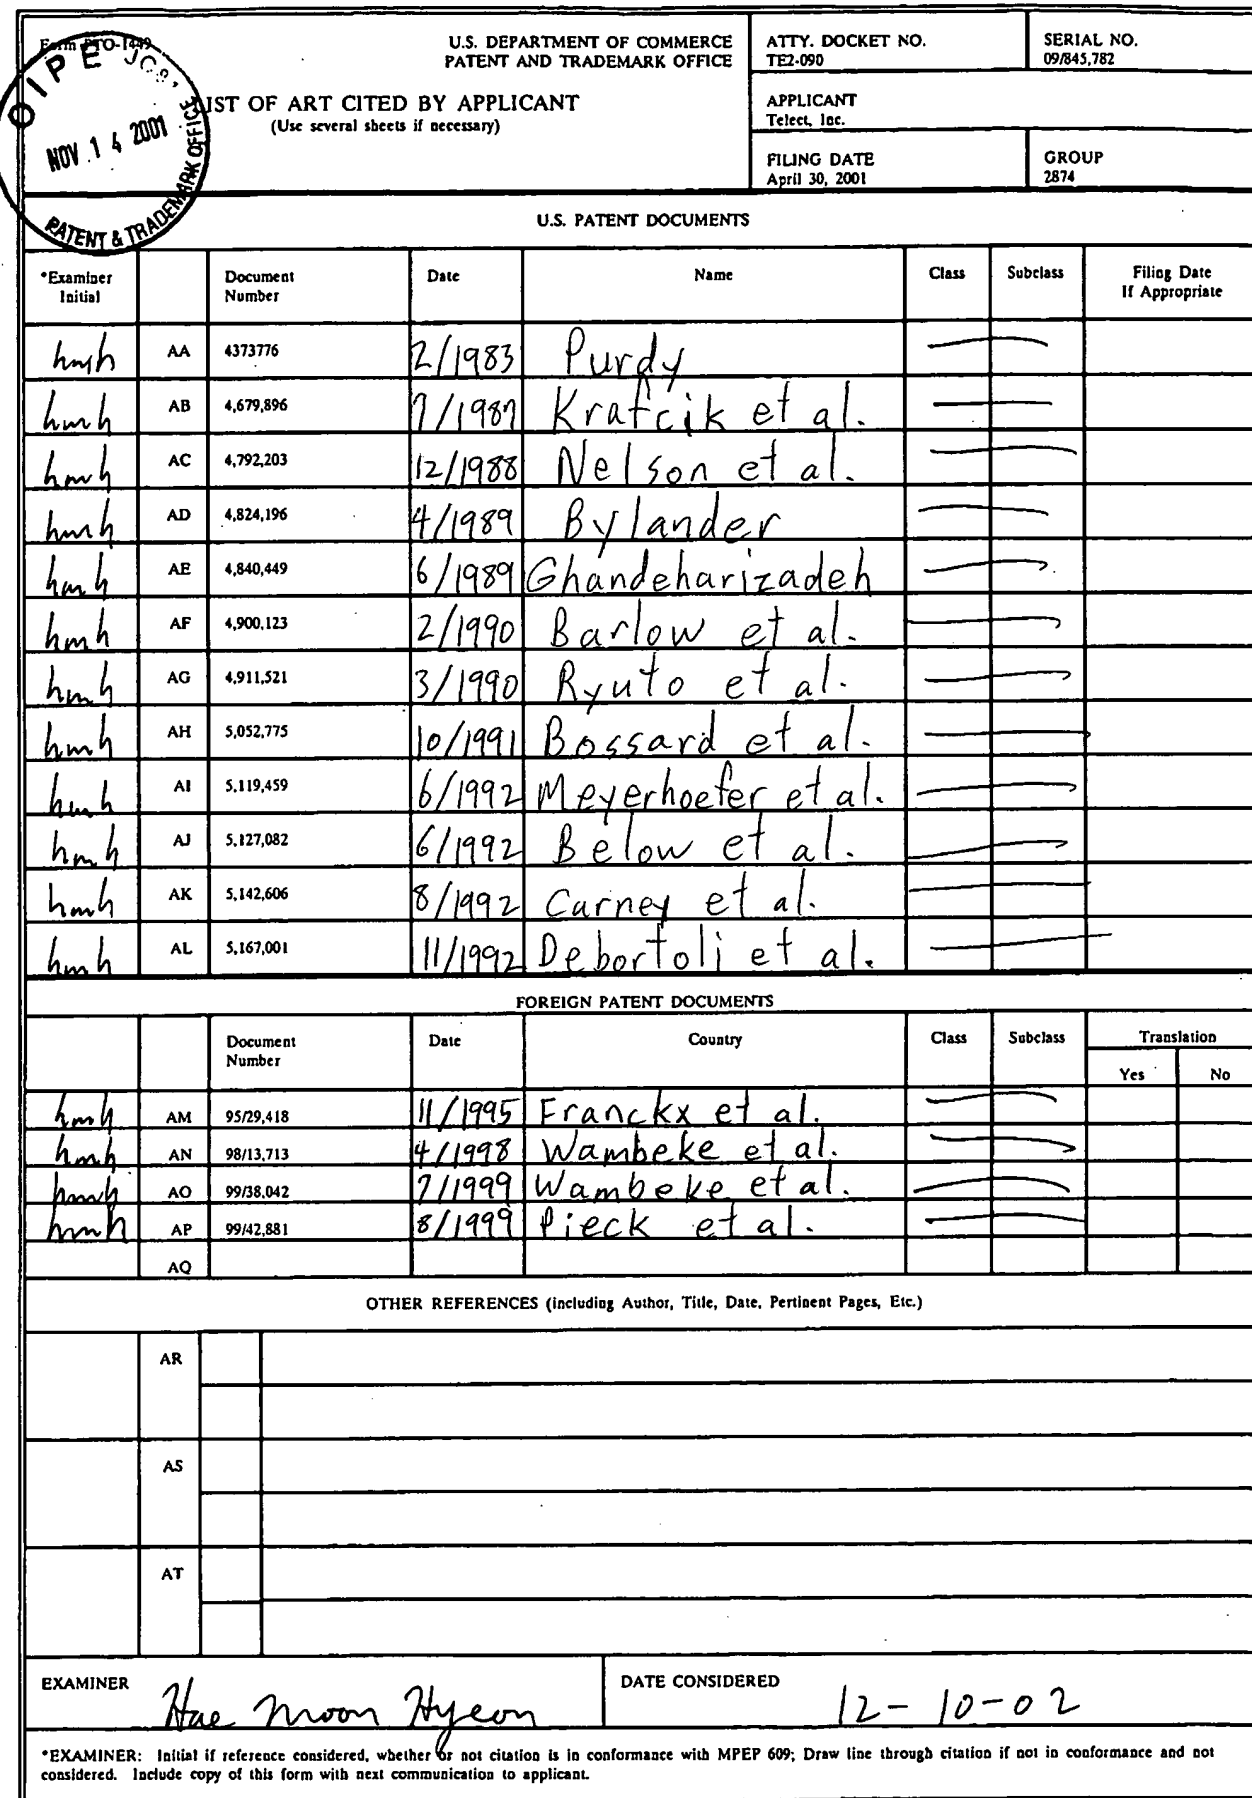 Form PTO-1449
U.S. DEPARTMENT OF COMMERCE
PATENT AND TRADEMARK OFFICE
ATTY. DOCKET NO.
TE2-090
SERIAL NO.
09/845,782
LIST OF ART CITED BY APPLICANT
(Use several sheets if necessary)
APPLICANT
Telect, Inc.
FILING DATE
April 30, 2001
GROUP
2874
OIPE
NOV 14 2001
PATENT & TRADEMARK OFFICE
U.S. PATENT DOCUMENTS
*Examiner Initial Document Number Date Name Class Subclass Filing Date If Appropriate
hmh AA 4373776 2/1983 Purdy
hmh AB 4,679,896 7/1987 Krafcik et al.
hmh AC 4,792,203 12/1988 Nelson et al.
hmh AD 4,824,196 4/1989 Bylander
hmh AE 4,840,449 6/1989 Ghandeharizadeh
hmh AF 4,900,123 2/1990 Barlow et al.
hmh AG 4,911,521 3/1990 Ryuto et al.
hmh AH 5,052,775 10/1991 Bossard et al.
hmh AI 5,119,459 6/1992 Meyerhoefer et al.
hmh AJ 5,127,082 6/1992 Below et al.
hmh AK 5,142,606 8/1992 Carney et al.
hmh AL 5,167,001 11/1992 Debortoli et al.
FOREIGN PATENT DOCUMENTS
Document Number Date Country Class Subclass Translation
Yes No
hmh AM 95/29,418 11/1995 Franckx et al.
hmh AN 98/13,713 4/1998 Wambeke et al.
hmh AO 99/38,042 7/1999 Wambeke et al.
hmh AP 99/42,881 8/1999 Pieck et al.
AQ
OTHER REFERENCES (including Author, Title, Date, Pertinent Pages, Etc.)
AR
AS
AT
EXAMINER Hae Moon Hyeon DATE CONSIDERED 12-10-02
*EXAMINER: Initial if reference considered, whether or not citation is in conformance with MPEP 609; Draw line through citation if not in conformance and not
considered. Include copy of this form with next communication to applicant.